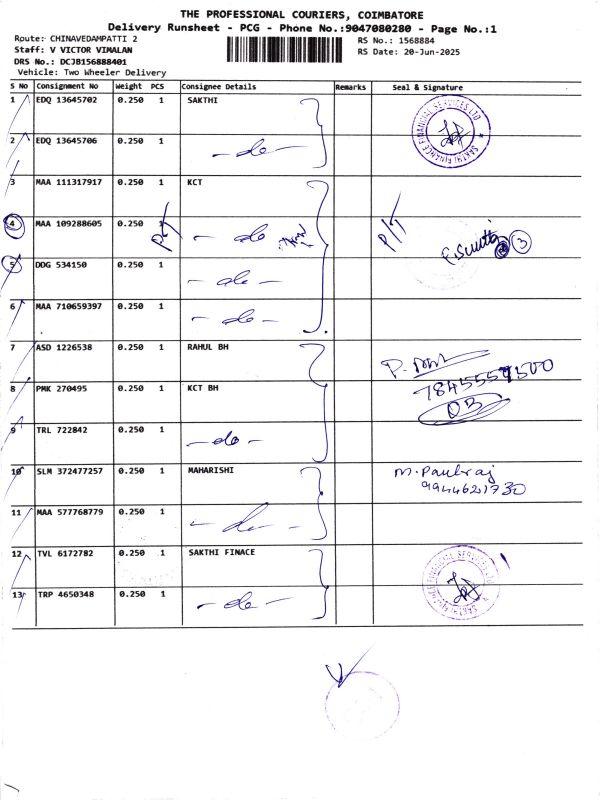 THE PROFESSIONAL COURIERS, COIMBATORE
Delivery Runsheet - PCG - Phone No.:9047080280 - Page No.:1
Route: CHINAVEDAMPATTI 2
RS No.: 1568884
Staff: V VICTOR VIMALAN
RS Date: 20-Jun-2025
DRS No.: DCJB156888401
Vehicle: Two Wheeler Delivery
S No Consignment No Weight PCS Consignee Details Remarks Seal & Signature
1 EDQ 13645702 0.250 1 SAKTHI
SAKTHI FINANCE FINANCIAL SERVICES LTD
2 EDQ 13645706 0.250 1 - do -
3 MAA 111317917 0.250 1 KCT
4 MAA 109288605 0.250 1 - do - P/T 3
5 DDG 534150 0.250 1 - do -
6 MAA 710659397 0.250 1 - do -
7 ASD 1226538 0.250 1 RAHUL BH
8 PMK 270495 0.250 1 KCT BH
9 TRL 722842 0.250 1 - do -
10 SLM 372477257 0.250 1 MAHARISHI M. Paulraj
11 MAA 577768779 0.250 1 - do -
12 TVL 6172782 0.250 1 SAKTHI FINACE
13 TRP 4650348 0.250 1 - do -